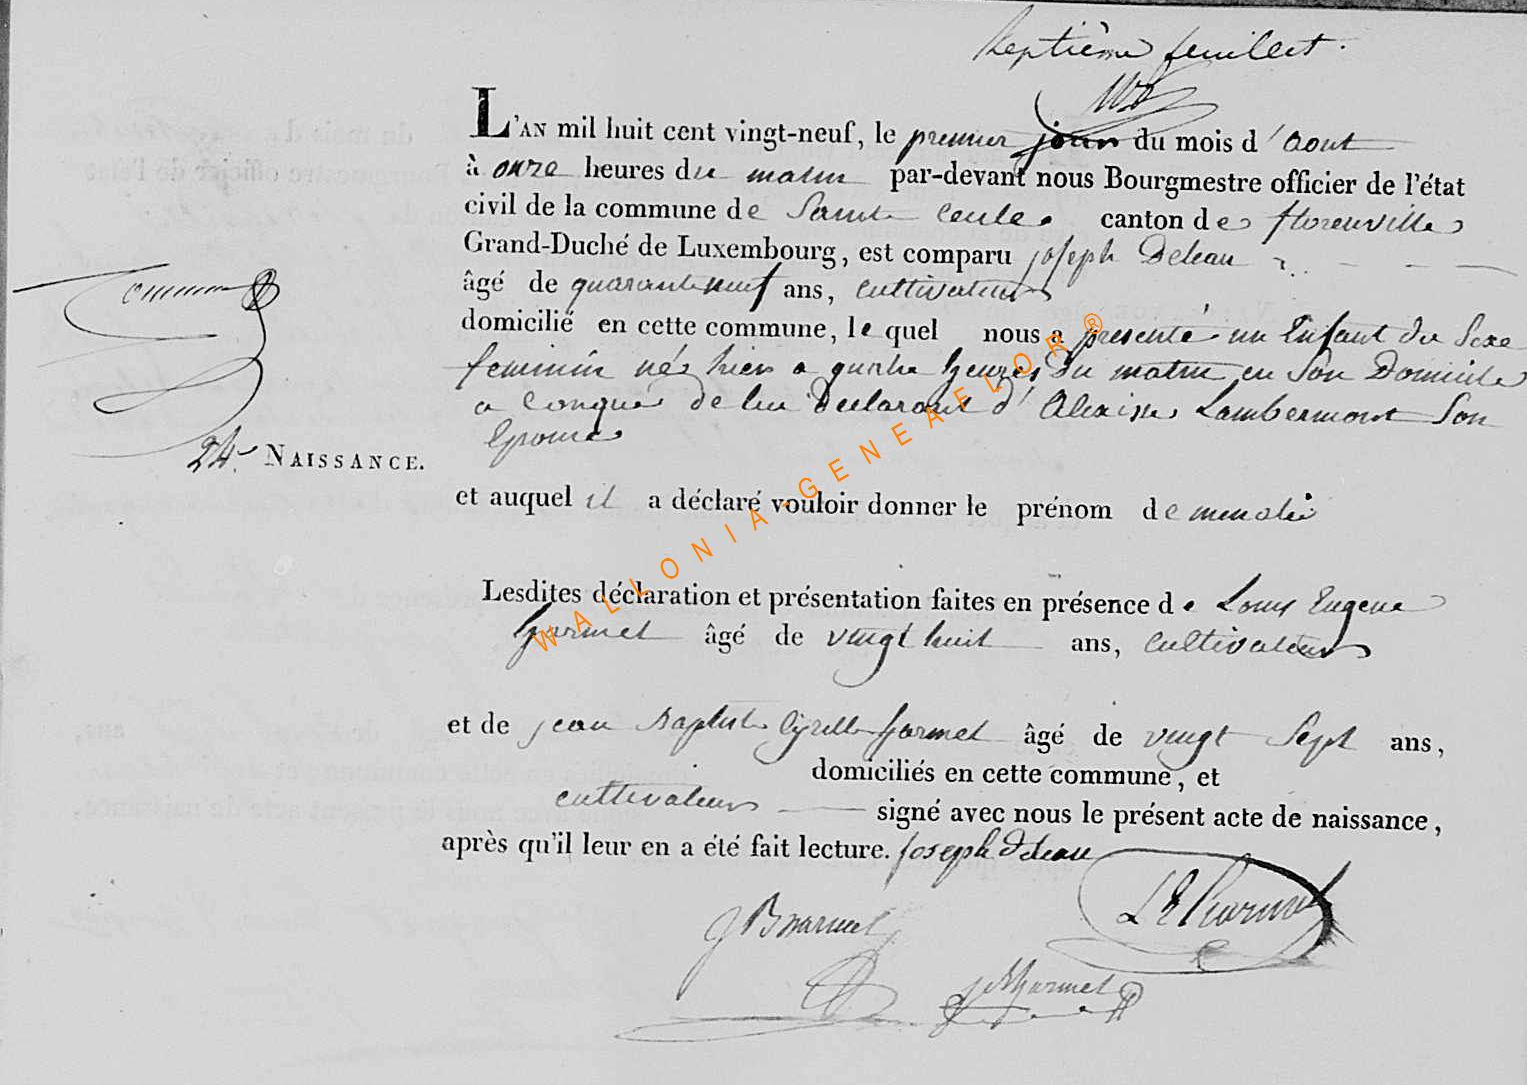 septième feuillet.
L'AN mil huit cent vingt-neuf, le premier jour du mois d'aout
à onze heures du matin par-devant nous Bourgmestre officier de l'état
civil de la commune de Sainte Cecile canton de florenville
Grand-Duché de Luxembourg, est comparu joseph Deleau
âgé de quarante neuf ans, cultivateur
domicilié en cette commune, lequel nous a présenté un Enfant du Sexe
feminin née hier a quatre heures du matin en Son Domicile
a Conques de lui Declarant d' Lambermont Son
Epouse
24e NAISSANCE.
et auquel il a déclaré vouloir donner le prénom de
Lesdites déclaration et présentation faites en présence de Louis Eugene
âgé de vingt huit ans, cultivateur
et de jean Baptiste Cyrille âgé de vingt Sept ans,
domiciliés en cette commune, et
cultivateur signé avec nous le présent acte de naissance,
après qu'il leur en a été fait lecture. joseph Deleau
WALLONIA-GENEAFLOR®